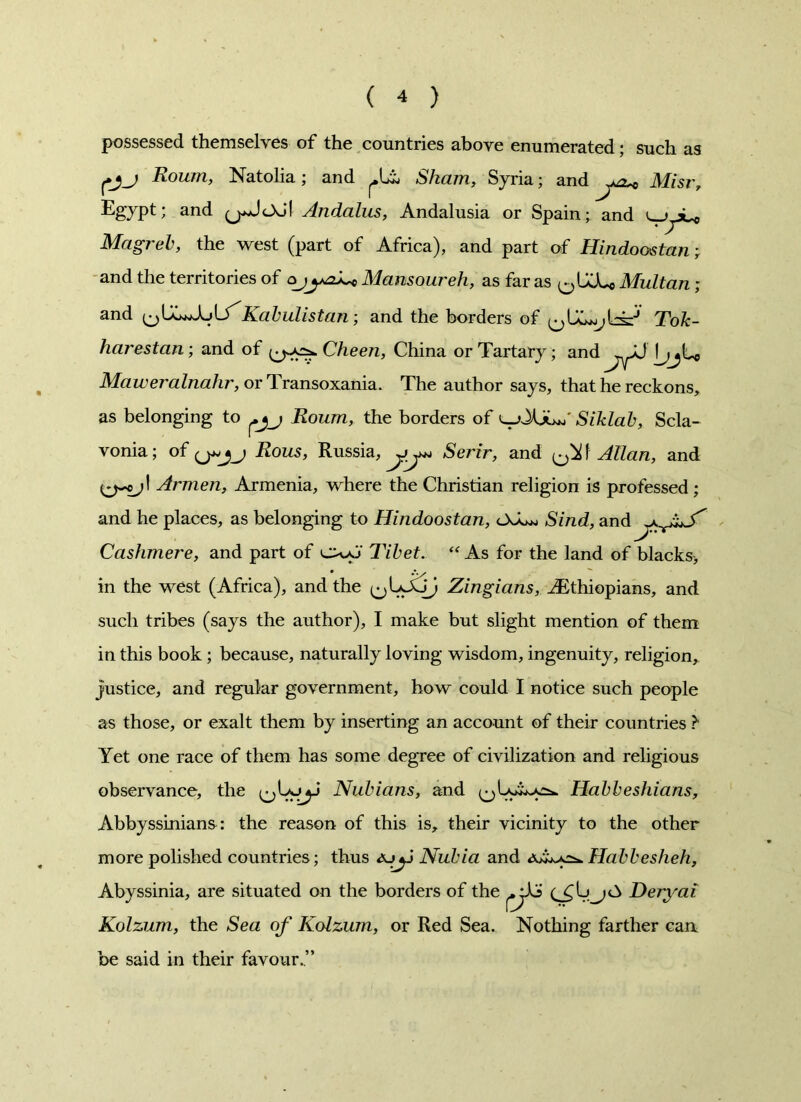 ( 4 )
possessed themselves of the countries above enumerated; such as
روم Roum, Natolia; and شام Sham, Syria; and مصر Misr,
Egypt; and اندلس Andalus, Andalusia or Spain; and مغرب
Magreb, the west (part of Africa), and part of Hindoostan;
and the territories of منصوره Mansoureh, as far as ملتان Multan;
and كابلستان Kabulistan; and the borders of تخارستان Tok-
harestan; and of چين Cheen, China or Tartary; and ماورا النهر
Maweralnahr, or Transoxania. The author says, that he reckons,
as belonging to روم Roum, the borders of سقلاب Siklab, Scla-
vonia; of روس Rous, Russia, سرير Serir, and الان Allan, and
ارمن Armen, Armenia, where the Christian religion is professed;
and he places, as belonging to Hindoostan, سند Sind, and كشمير
Cashmere, and part of تبت Tibet. “ As for the land of blacks,
in the west (Africa), and the زنكيان Zingians, Æthiopians, and
such tribes (says the author), I make but slight mention of them
in this book; because, naturally loving wisdom, ingenuity, religion,
justice, and regular government, how could I notice such people
as those, or exalt them by inserting an account of their countries?
Yet one race of them has some degree of civilization and religious
observance, the نوبيان Nubians, and حبشيان Habbeshians,
Abbyssinians: the reason of this is, their vicinity to the other
more polished countries; thus نوبه Nubia and حبشه Habbesheh,
Abyssinia, are situated on the borders of the درياي قلزم Deryai
Kolzum, the Sea of Kolzum, or Red Sea. Nothing farther can
be said in their favour.”